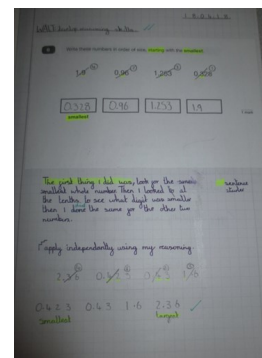 Write these numbers in order of size, starting with the smallest.
1.9 0.96 1.253 0.328
0.328 0.96 1.253 1.9
smallest
The first thing I did was, look for the
smallest whole number. Then I looked at
the tenths to see what digit was smaller
then I done the same for the other two
numbers.
sentence
starter
I apply independently using my reasoning.
2.36 0.423 0.43 1.6
0.423 0.43 1.6 2.36
smallest largest